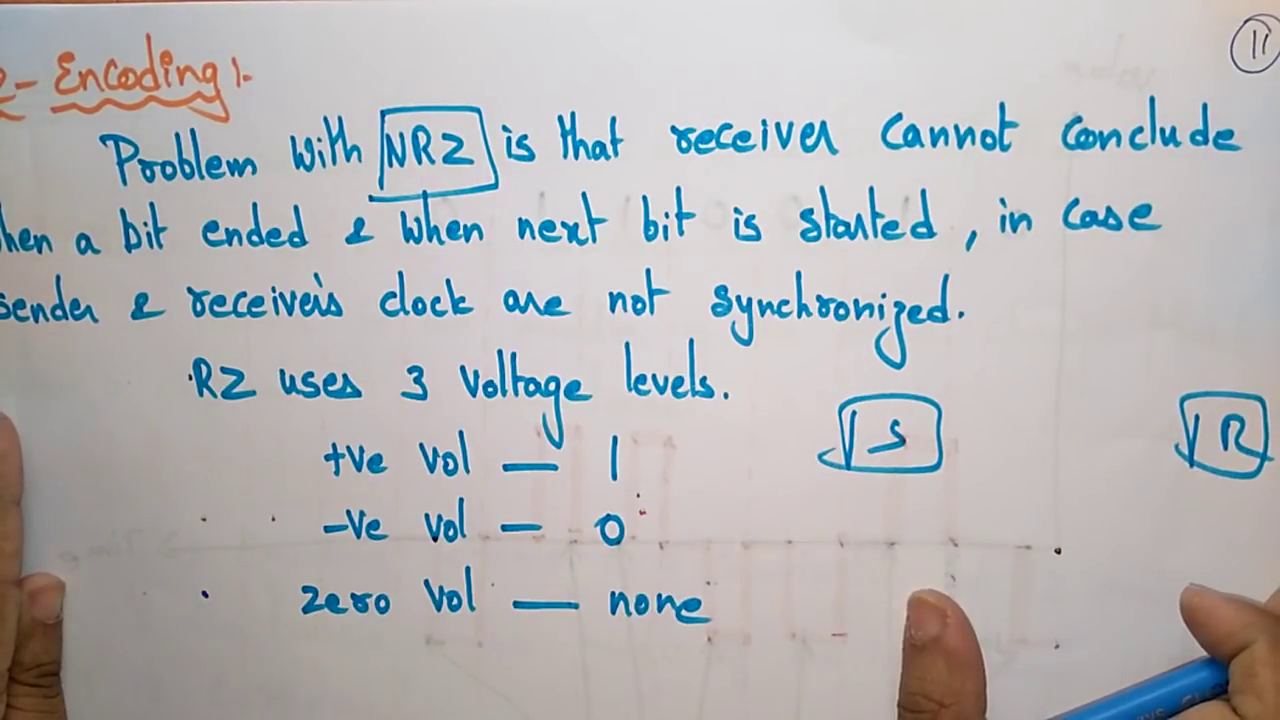 11
- Encoding :-
Problem with NRZ is that receiver cannot conclude
hen a bit ended & when next bit is started, in case
sender & receiver's clock are not synchronized.
RZ uses 3 voltage levels.
S R
+ve vol — 1
-ve vol — 0
zero vol — none